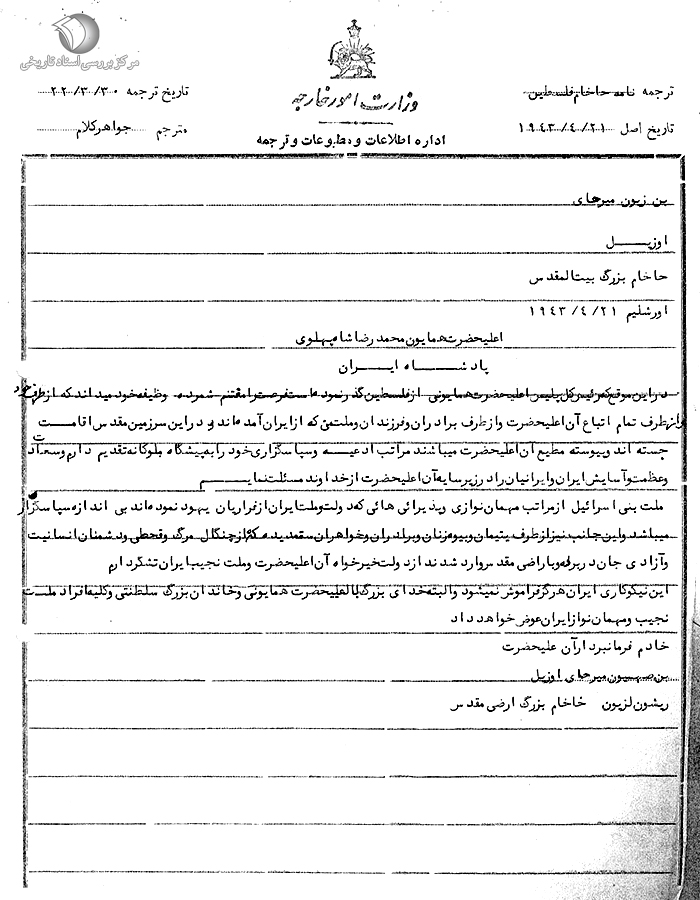 مرکز بررسی اسناد تاریخی
وزارت امور خارجه
اداره اطلاعات و مطبوعات و ترجمه
ترجمه نامه حاخام فلسطین
تاریخ اصل ۱۹۴۳/۴/۲۱
تاریخ ترجمه
مترجم جواهر کلام
بن زیون میرحای
اوزیل
حاخام بزرگ بیت المقدس
اورشلیم ۱۹۴۳/۴/۲۱
اعلیحضرت همایون محمد رضا شاه پهلوی
پادشاه ایران
در این موقع که رئیس کل پلیس اعلیحضرت همایونی از فلسطین گذر نموده است فرصت را مغتنم شمرده وظیفه خود میداند که از طرف خود
و از طرف تمام اتباع آن اعلیحضرت و از طرف برادران و فرزندان و ملت من که از ایران آمده اند و در این سرزمین مقدس اقامت
جسته اند و پیوسته مطیع آن اعلیحضرت میباشند مراتب ادعیه و سپاسگزاری خود را به پیشگاه ملوکانه تقدیم دارم و سعادت
و عظمت و آسایش ایران و ایرانیان را در زیر سایه آن اعلیحضرت از خداوند مسئلت نمایم
ملت بنی اسرائیل از مراتب مهمان نوازی و پذیرائی هائی که دولت و ملت ایران از فراریان یهود نموده اند بی اندازه سپاسگزار
میباشد و این جانب نیز از طرف یتیمان و بیوه زنان و برادران و خواهران ستمدیده که از چنگال مرگ و قحطی و دشمنان انسانیت
و آزادی جان در برده و باراضی مقدسه وارد شدند از دولت خیرخواه آن اعلیحضرت و ملت نجیب ایران تشکر دارم
این نیکوکاری ایران هرگز فراموش نمیشود و البته خدای بزرگ باعلیحضرت همایونی و خاندان بزرگ سلطنتی و کلیه افراد ملت
نجیب و مهمان نواز ایران عوض خواهد داد
خادم فرمانبردار آن علیحضرت
بن صهیون میرحای اوزیل
ریشون لزیون خاخام بزرگ ارضی مقدس